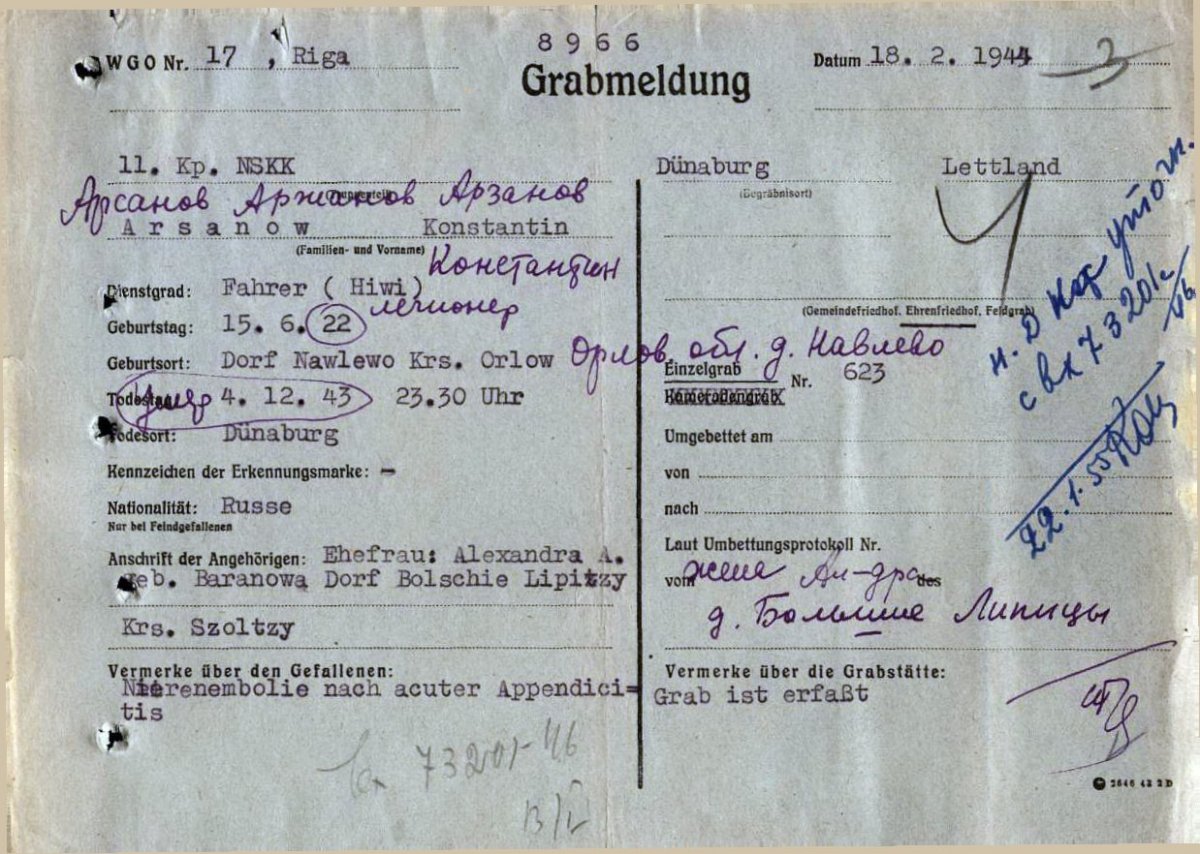 8966
WGO Nr. 17, Riga
Grabmeldung
Datum 18. 2. 1944
11. Kp. NSKK
Арсанов Аржанов Арзанов
Arsanow Konstantin
(Familien- und Vorname)
Константин
Dienstgrad: Fahrer ( Hiwi)
легионер
Geburtstag: 15. 6. 22
Geburtsort: Dorf Nawlewo Krs. Orlow
Орлов. обл. д. Навлево
Todestag: 4. 12. 43 23.30 Uhr
умер
Todesort: Dünaburg
Kennzeichen der Erkennungsmarke: -
Nationalität: Russe
Nur bei Feindgefallenen
Anschrift der Angehörigen: Ehefrau: Alexandra A.
geb. Baranowa Dorf Bolschie Lipitzy
Krs. Szoltzy
Vermerke über den Gefallenen:
Nierenembolie nach acuter Appendici=
tis
73201-46
Dünaburg Lettland
(Begräbnisort)
(Gemeindefriedhof, Ehrenfriedhof, Feldgrab)
Einzelgrab
Kameradengrab
Nr. 623
Umgebettet am
von
nach
Laut Umbettungsprotokoll Nr.
vom des
жена Ал-дра
д. Большие Липицы
Vermerke über die Grabstätte:
Grab ist erfaßt
с вх 73201с
46
22.1.55
2646 43 2D